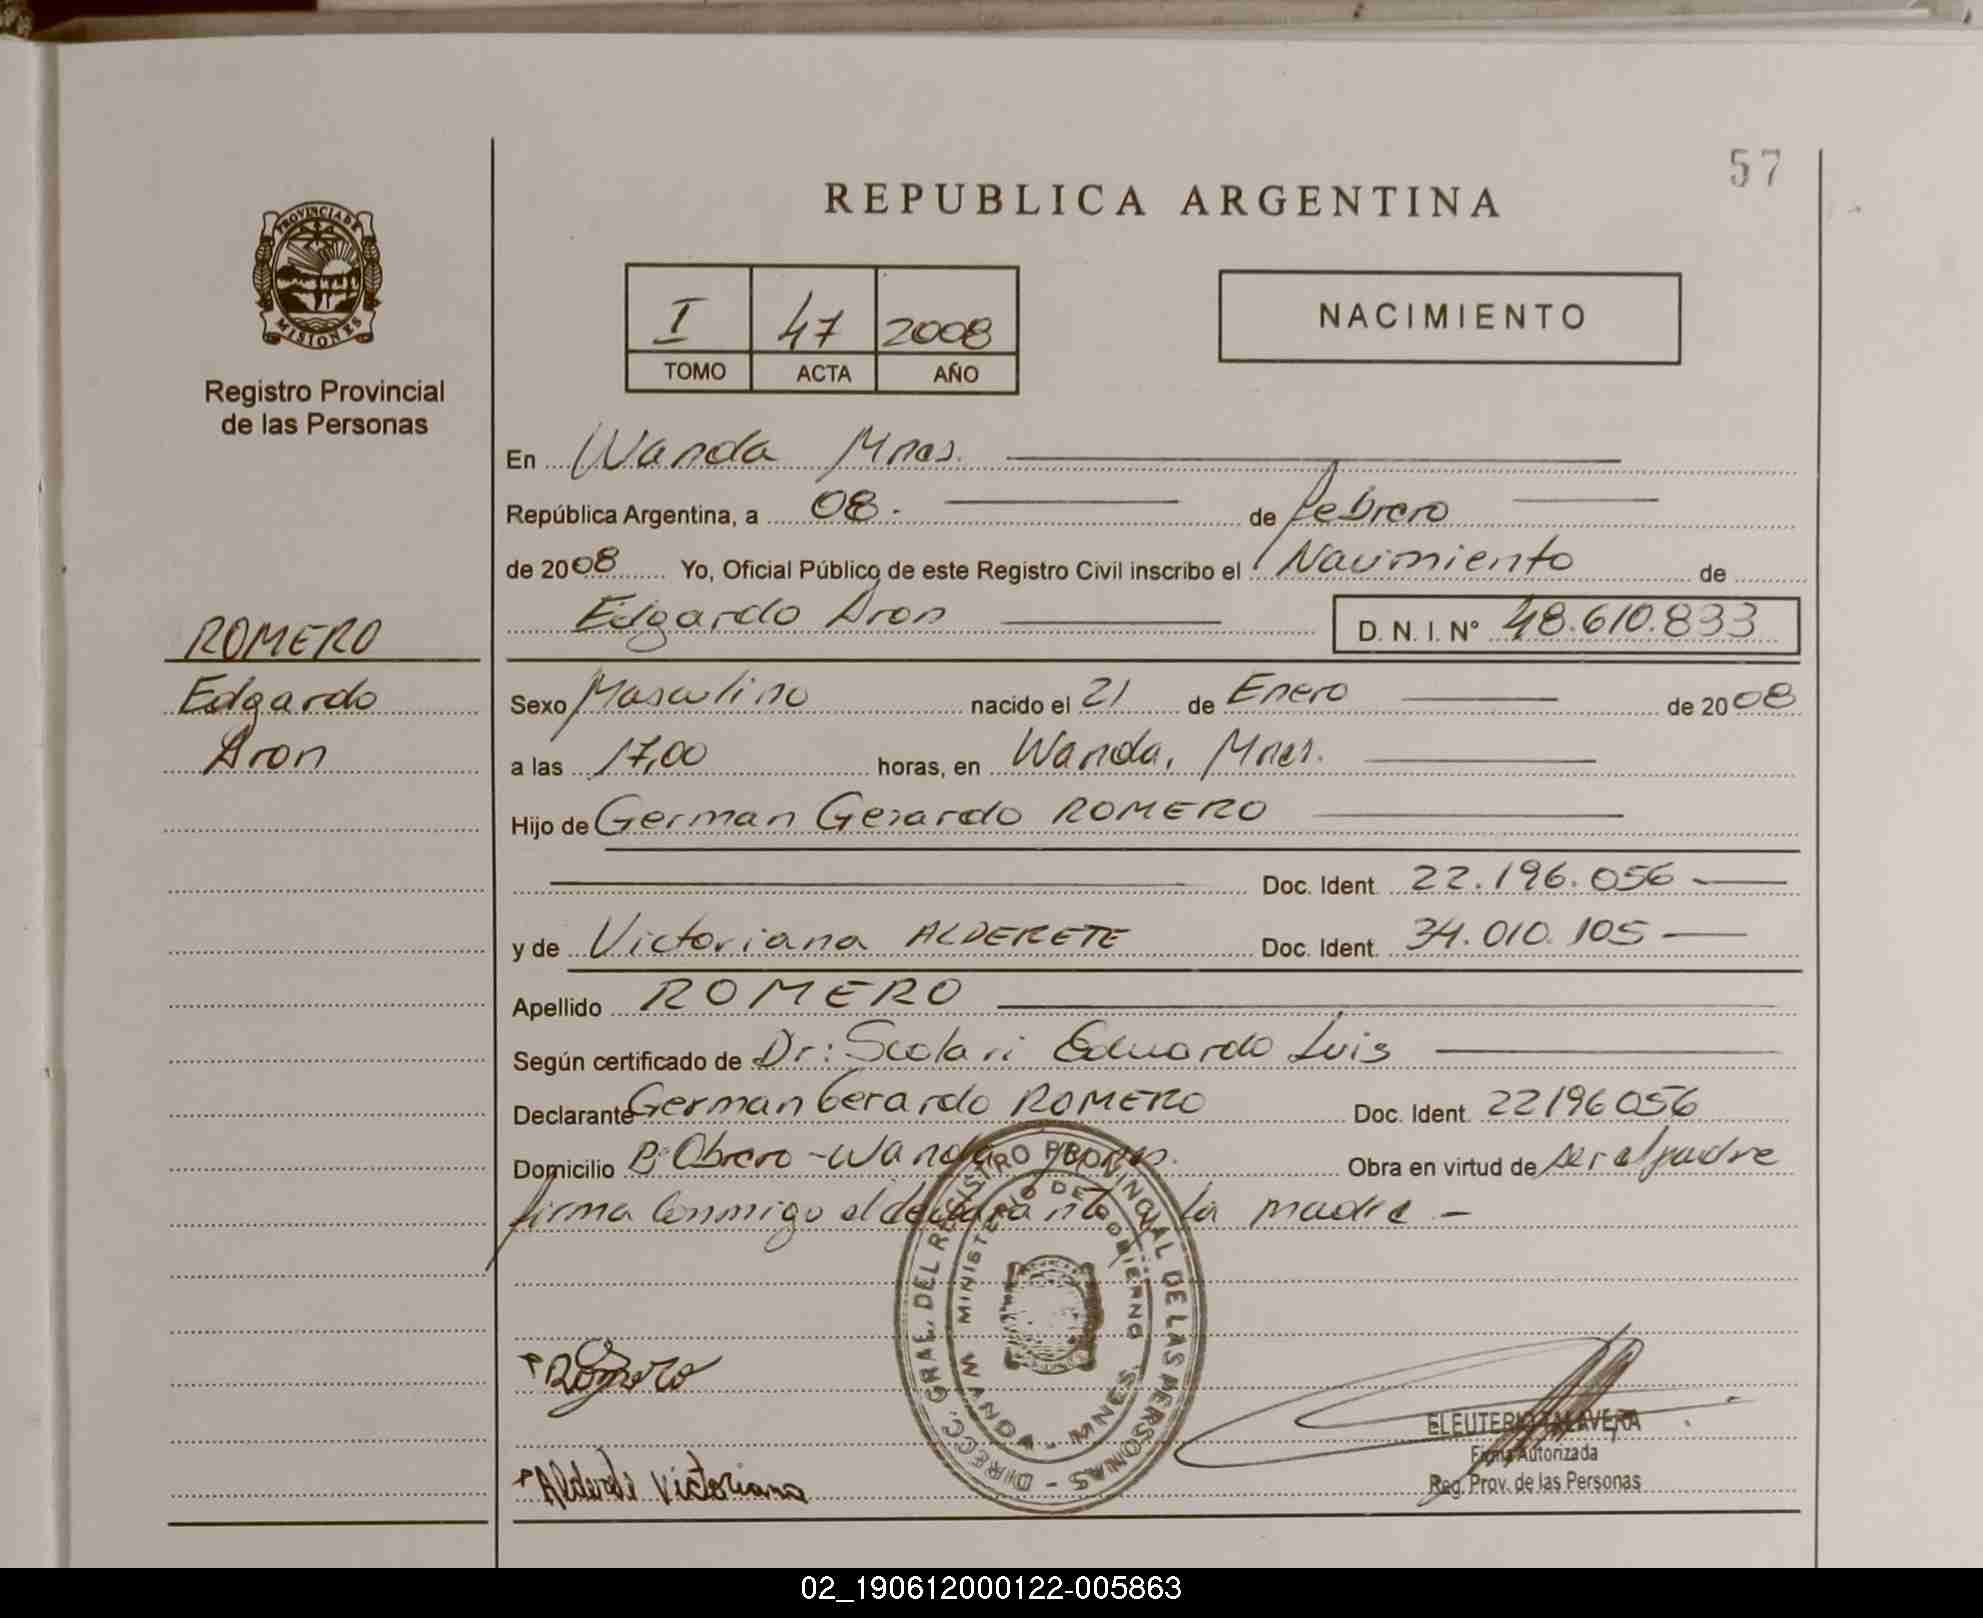 57
REPUBLICA ARGENTINA
PROVINCIA DE MISIONES
Registro Provincial
de las Personas
I 47 2008
TOMO ACTA AÑO
NACIMIENTO
En Wanda Mnes.
República Argentina, a 08. de febrero
de 2008 Yo, Oficial Público de este Registro Civil inscribo el Nacimiento de
Edgardo Aron D. N. I. N° 48.610.833
ROMERO
Edgardo
Aron
Sexo Masculino nacido el 21 de Enero de 2008
a las 17,00 horas, en Wanda, Mnes.
Hijo de German Gerardo ROMERO
Doc. Ident. 22.196.056
y de Victoriana ALDERETE Doc. Ident. 34.010.105
Apellido ROMERO
Según certificado de Dr: Scolari Eduardo Luis
Declarante German Gerardo ROMERO Doc. Ident. 22196056
Domicilio B: Obrero - Wanda Mnes. Obra en virtud de ser el padre
firma conmigo el declarante y la madre -
DIRECC. GRAL. DEL REGISTRO PROVINCIAL DE LAS PERSONAS -
MINISTERIO DE GOBIERNO
WANDA - MNES.
Romero
Alderete Victoriana
ELEUTERIO TALAVERA
Firma Autorizada
Reg. Prov. de las Personas
02_190612000122-005863